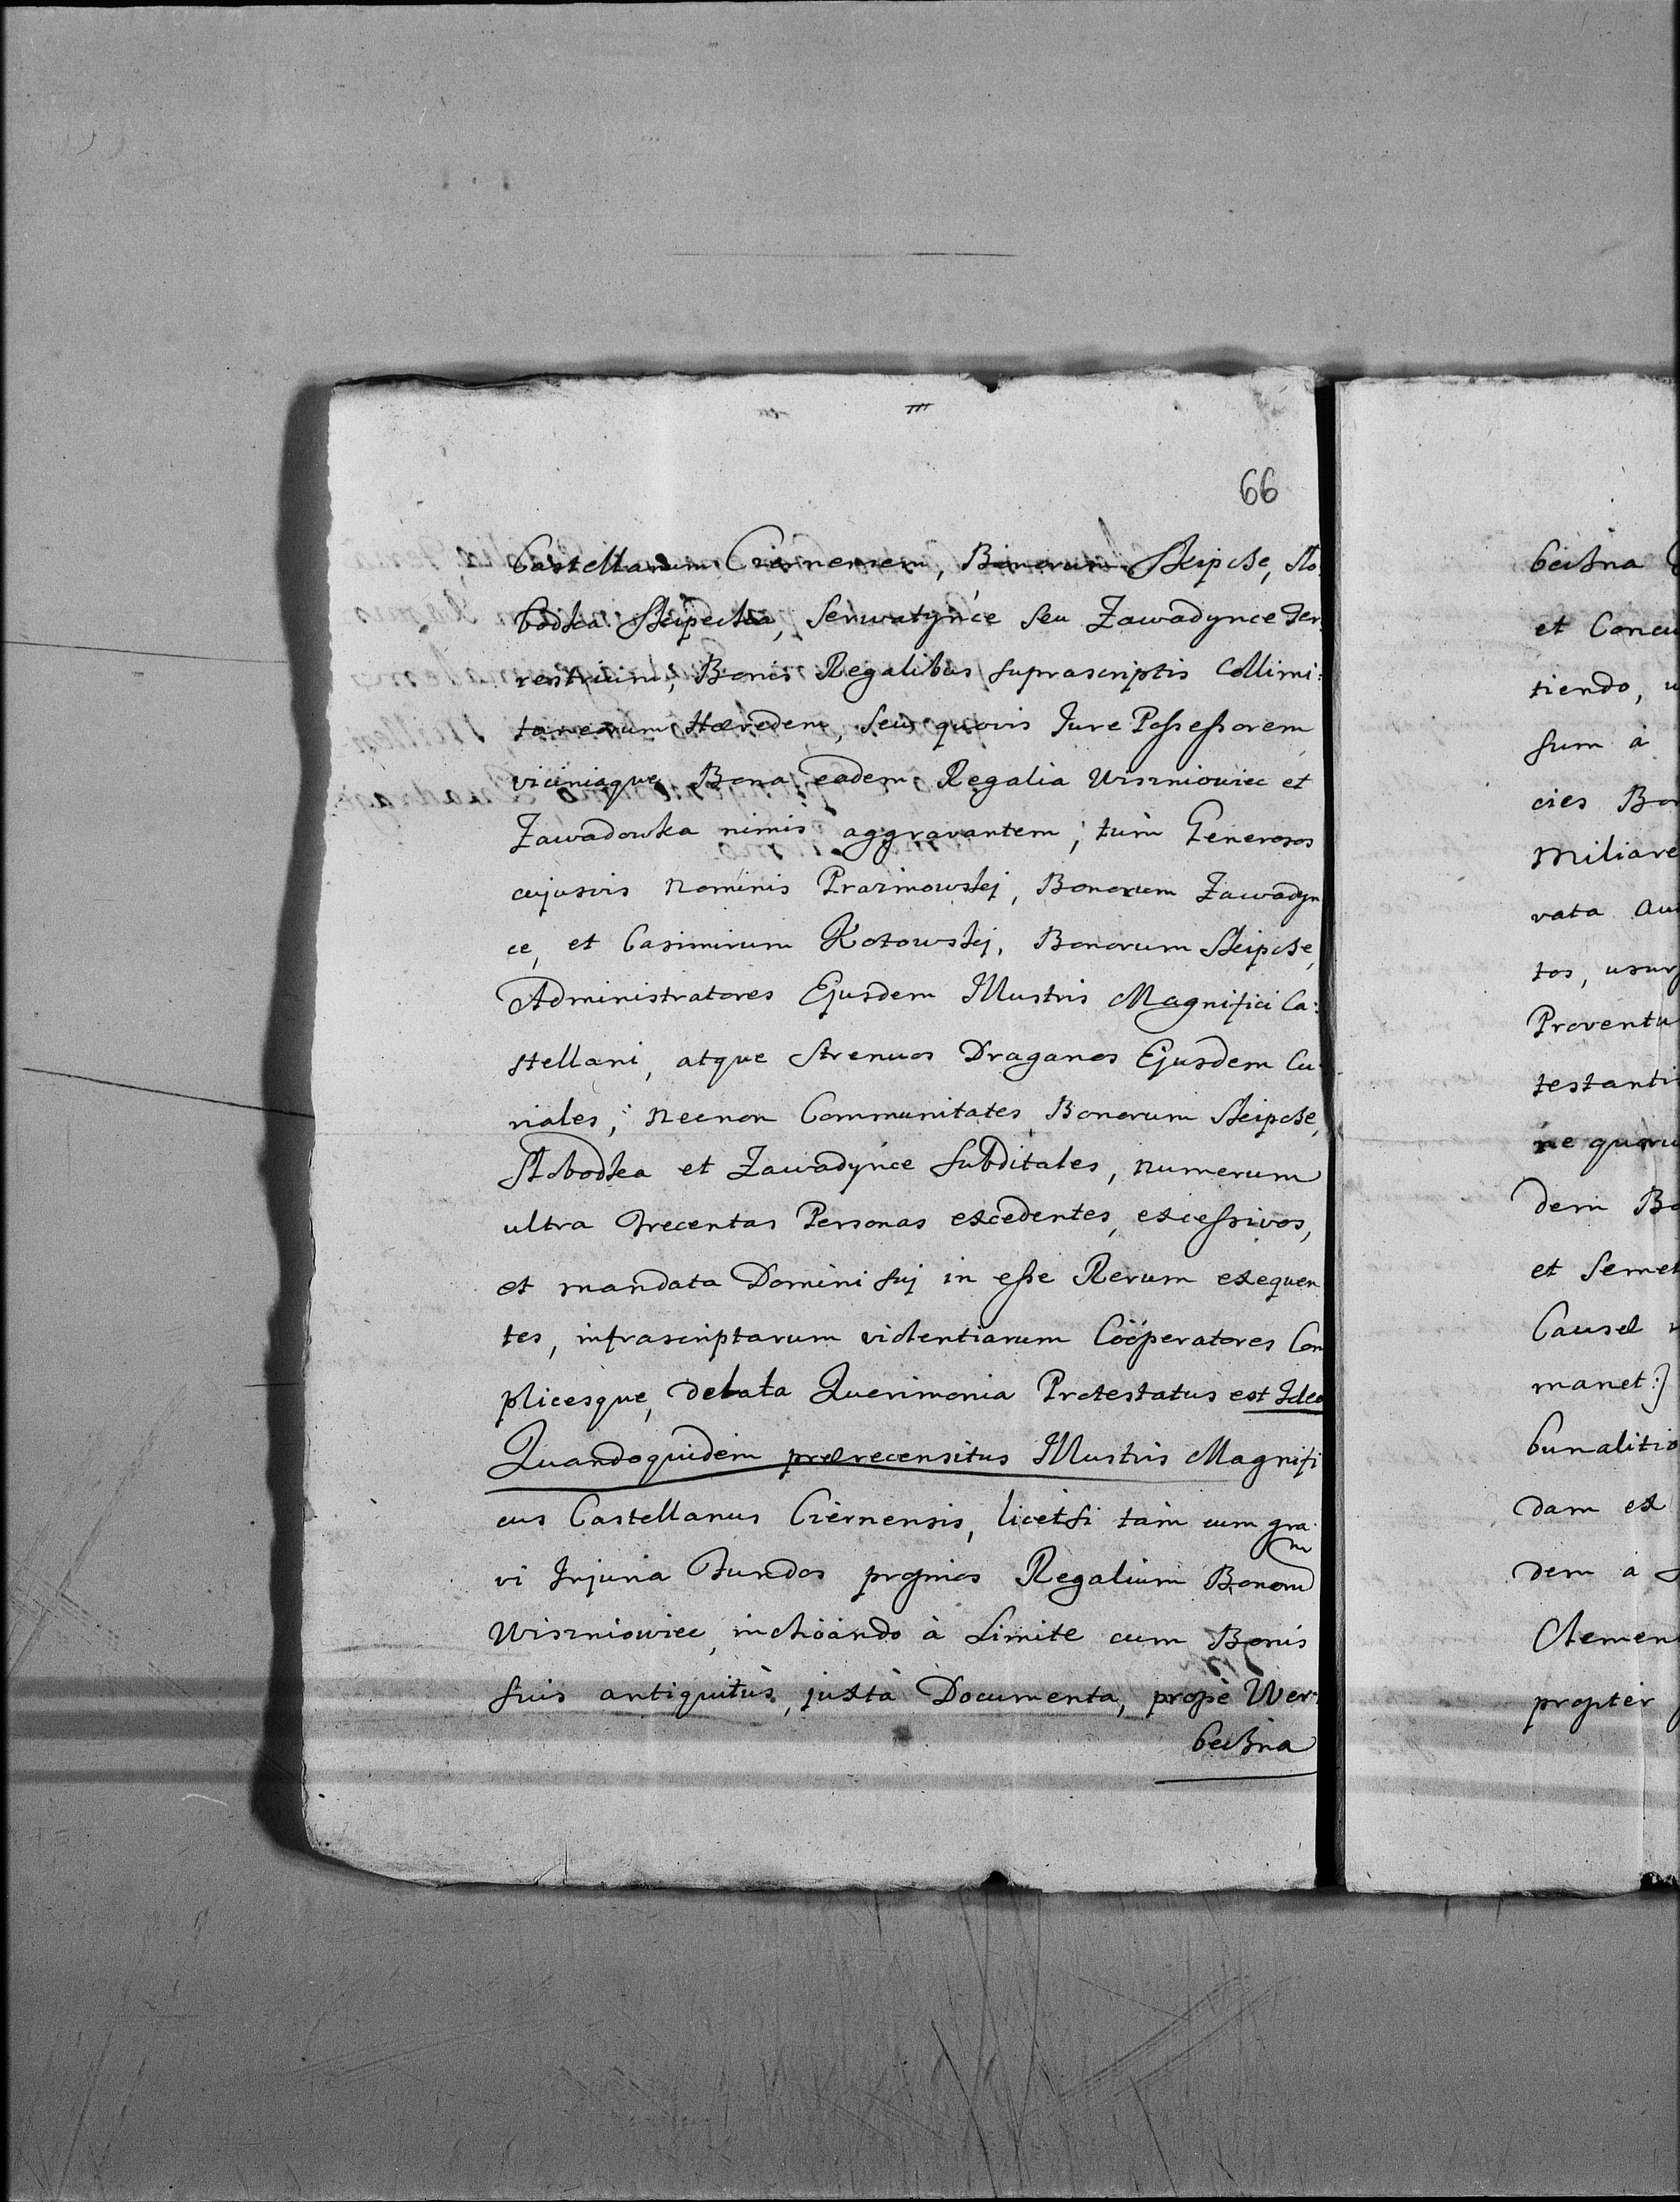 66
Castellanum Czernensem, Bonorum Skipcze, Slo:
bodka Skipecka, Serwatyńce seu Zawadynce Ter:
restrium, Bonis Regalibus suprascriptis Collimi:
taneorum Hæredem, seu quovis Jure Possessorem
viciniaque Bona eadem Regalia Wiszniowiec et
Zawadowka nimis aggravantem; tum Generosos
cujusvis Nominis Prazmowskj, Bonorum Zawadyn
ce, et Casimirum Kotowskj, Bonorum Skipcze,
Administratores Ejusdem Illustris Magnifici Ca:
stellani, atque Strenuos Draganos Ejusdem Cu:
riales; necnon Communitates Bonorum Skipcze,
Slobodka et Zawadyńce subditales, numerum
ultra Trecentas Personas excedentes, excessivos,
et mandata Domini suj in esse Rerum exequen
tes, infrascriptarum violentiarum Cööperatores Com
plicesque, delata Querimonia Protestatus est Ideo
Quandoquidem prærecensitus Illustris Magnifi
cus Castellanus Czernensis, licetsi tàm cum gra:
vi Injuria Fundos proprios Regalium Bonorum
Wiszniowiec, inchöando à Limite cum Bonis
suis antiquitùs, juxtà Documenta, propè Wer:
beczna
beczna
et Concu
tiendo, u
sum à
cies Bon
miliare
vata au
tos, usur
Proventu
testanti
ne quoru
dem Bo
et semet
Causæ
manet:)
bunalitio
dam ex
dem à
Clemen
proptèr